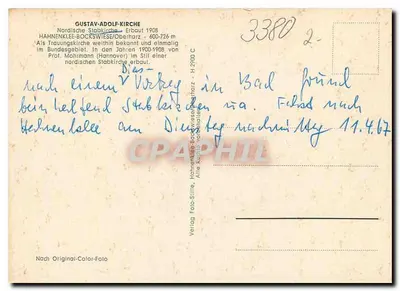 GUSTAV-ADOLF-KIRCHE
Nordische Stabkirche - Erbaut 1908
HAHNENKLEE-BOCKSWIESE/Oberharz - 600-726 m
Als Trauungskirche weithin bekannt und einmalig
im Bundesgebiet. In den Jahren 1900-1908 von
Prof. Mohrmann (Hannover) im Stil einer
nordischen Stabkirche erbaut.
3380
2.-
Dias-
nach einem Vortrag in Bad
Stabkirchen u.a. Fahrt nach
Hahnenklee am Dienstag nachmittag 11.4.67
CARTES POSTALES
CARPHIL
Verlag Foto-Stille, Hahnenklee-Bockswiese/Oberharz - H 2903 C
Alle Rechte vorbehalten
Nach Original-Color-Foto